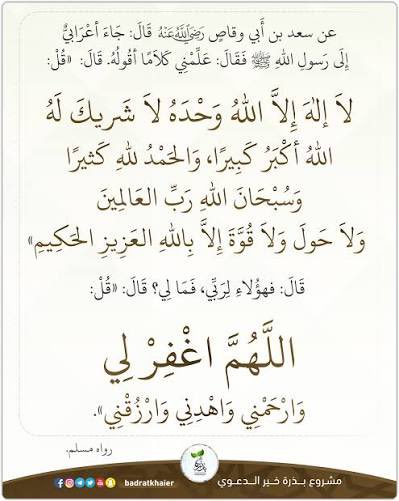 عن سعد بن أَبي وقاصٍ رَضِيَ اللهُ عَنْهُ قَالَ: جَاءَ أَعْرَابيٌّ
إِلَى رَسولِ اللهِ ﷺ فَقَالَ: عَلِّمْنِي كَلاَمًا أَقُولُهُ. قَالَ: «قُلْ:
لاَ إلٰهَ إِلاَّ اللهُ وَحْدَهُ لاَ شَرِيكَ لَهُ
اللهُ أَكْبَرُ كَبِيرًا، وَالحَمْدُ للهِ كَثيرًا
وَسُبْحَانَ اللهِ رَبِّ العَالَمِينَ
وَلاَ حَولَ وَلاَ قُوَّةَ إِلاَّ بِاللهِ العَزِيزِ الحَكِيمِ»
قَالَ: فهؤُلاءِ لِرَبِّي، فَمَا لِي؟ قَالَ: «قُلْ:
اللَّهُمَّ اغْفِرْ لِي
وَارْحَمْنِي وَاهْدِنِي وَارْزُقْنِي».
رواه مسلم.
مشروع بذرة خير الـدعـوي
بذرة
badratkhaier